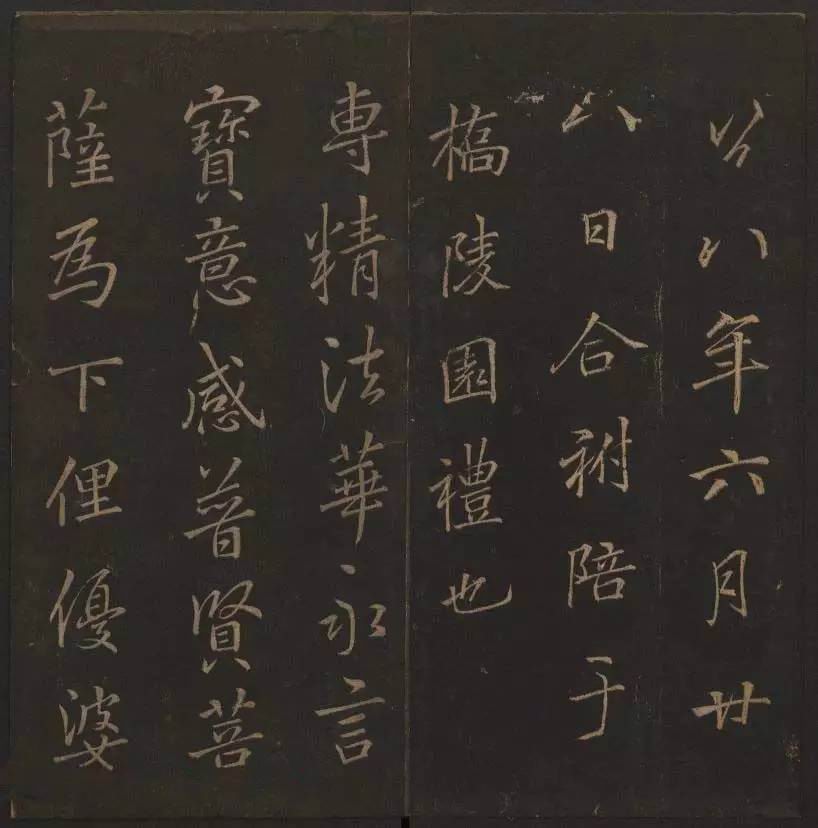 以八年六月廿
八日合祔陪于
橋陵園禮也
專精法華永言
寶意感普賢菩
薩為下俚優婆